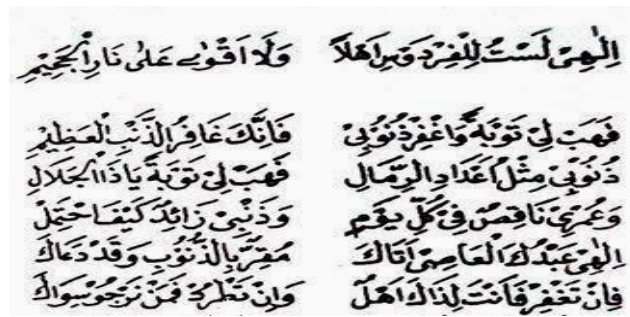 اِلٰهِيْ لَسْتُ لِلْفِرْدَوْسِ اَهْلاً وَلَا اَقْوٰى عَلىٰ نَارِ الْجَحِيْمِ
فَهَبْ لِيْ تَوْبَةً وَاغْفِرْ ذُنُوْبِيْ فَاِنَّكَ غَافِرُ الذَّنْبِ الْعَظِيْمِ
ذُنُوْبِيْ مِثْلُ اَعْدَادِ الرِّمَالِ فَهَبْ لِيْ تَوْبَةً يَاذَا الْجَلَالِ
وَعُمْرِيْ نَاقِصٌ فِيْ كُلِّ يَوْمٍ وَذَنْبِيْ زَائِدٌ كَيْفَ احْتِمَالْ
اِلٰهِيْ عَبْدُكَ الْعَاصِيْ اَتَاكَ مُقِرًّا بِالذُّنُوْبِ وَقَدْ دَعَاكَ
فَاِنْ تَغْفِرْ فَاَنْتَ لِذَاكَ اَهْلٌ وَاِنْ تَطْرُدْ فَمَنْ نَرْجُوْ سِوَاكَ